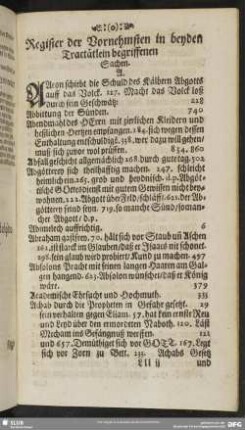 :(o):
Register der Vornehmsten in beyden
Tractätlein begriffenen
Sachen.
A.
Aaron schiebt die Schuld des Kälbern Abgotts
auff das Volck. 127. Macht das Volck loß
durch sein Geschwätz 228
Abbittung der Sünden. 740
Abendmahl des HErrn mit zierlichen Kleidern und
heßlichen Hertzen empfangen. 184. sich wegen dessen
Enthaltung entschuldigt. 338. wer dazu will gehen/
muß sich zuvor wol prüfen. 834. 860
Abfall geschicht allgemächlich 268. durch gute tag. 502
Abgötterey sich theilhafftig machen. 247. schleicht
heimlich ein. 265. grob und heydnisch. d. p. Abgöt-
tische GOttesdienst mit gutem Gewissen nicht bey-
wohnen. 122. Abgott über Feld/schläfft. 622. der Ab-
götterey feind seyn. 719. so manche Sünd/so man-
cher Abgott/ d. p.
Abimelech auffrichtig. 6
Abraham gastfrey. 70. hält sich vor Staub uñ Aschen
261. ist starck im Glauben/daß er Isaacs nit schonet.
296. sein glaub wird probiert/Kund zu machen. 497
Absolons Pracht mit seinen langen Haaren am Gal-
gen hangend. 623. Absolon wünschet/daß er König
wäre. 379
Academische Ehrsucht und Hochmuth. 335
Achab durch die Propheten in Gesicht gesetzt. 29
sein verhalten gegen Eliam. 57. hat kein ernste Reu
und Leyd über den ermordeten Naboth. 120. Läßt
Micham ins Gefängnuß werffen. 121
und 657. Demüthiget sich vor GOTT. 167. Legt
sich vor Zorn zu Bett. 233. Achabs Gesetz
Lll ij und